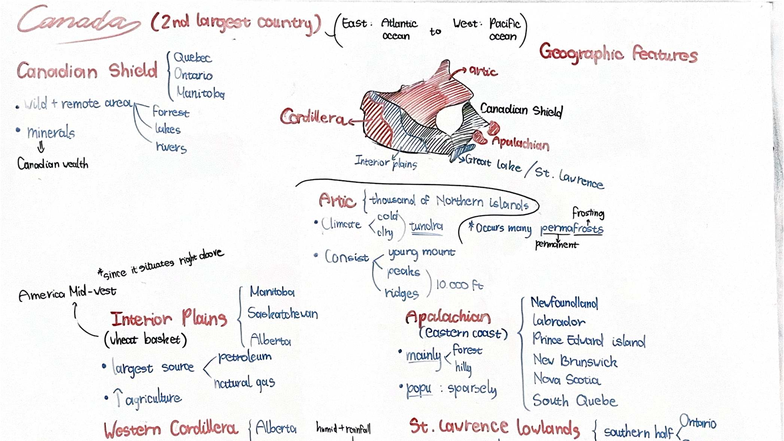 Canada (2nd largest country) (East: Atlantic ocean to West: Pacific ocean)
Geographic features
Canadian Shield
Quebec
Ontario
Manitoba
• wild + remote area
Forrest
lakes
rivers
• minerals
Canadian wealth
artic
Cordillera
Canadian Shield
Apalachian
Interior plains
Great lake / St. Lawrence
Artic
thousand of Northern islands
• Climate
cold
dry
tundra
*Occurs many permafrosts
frosting
permanent
• Consist
young mount
peaks
ridges
10.000 ft
*since it situates right above
America Mid-vest
Interior Plains
(wheat basket)
Manitoba
Saskatchewan
Alberta
• largest source
petroleum
natural gas
• ↑ agriculture
Apalachian
(eastern coast)
Newfoundland
labrador
Prince Edward island
New Brunswick
Nova Scotia
South Quebe
• mainly
forest
hilly
• popu : sparsely
Western Cordillera
Alberta
humid + rainfall
St. Lawrence lowlands
southern half
Ontario